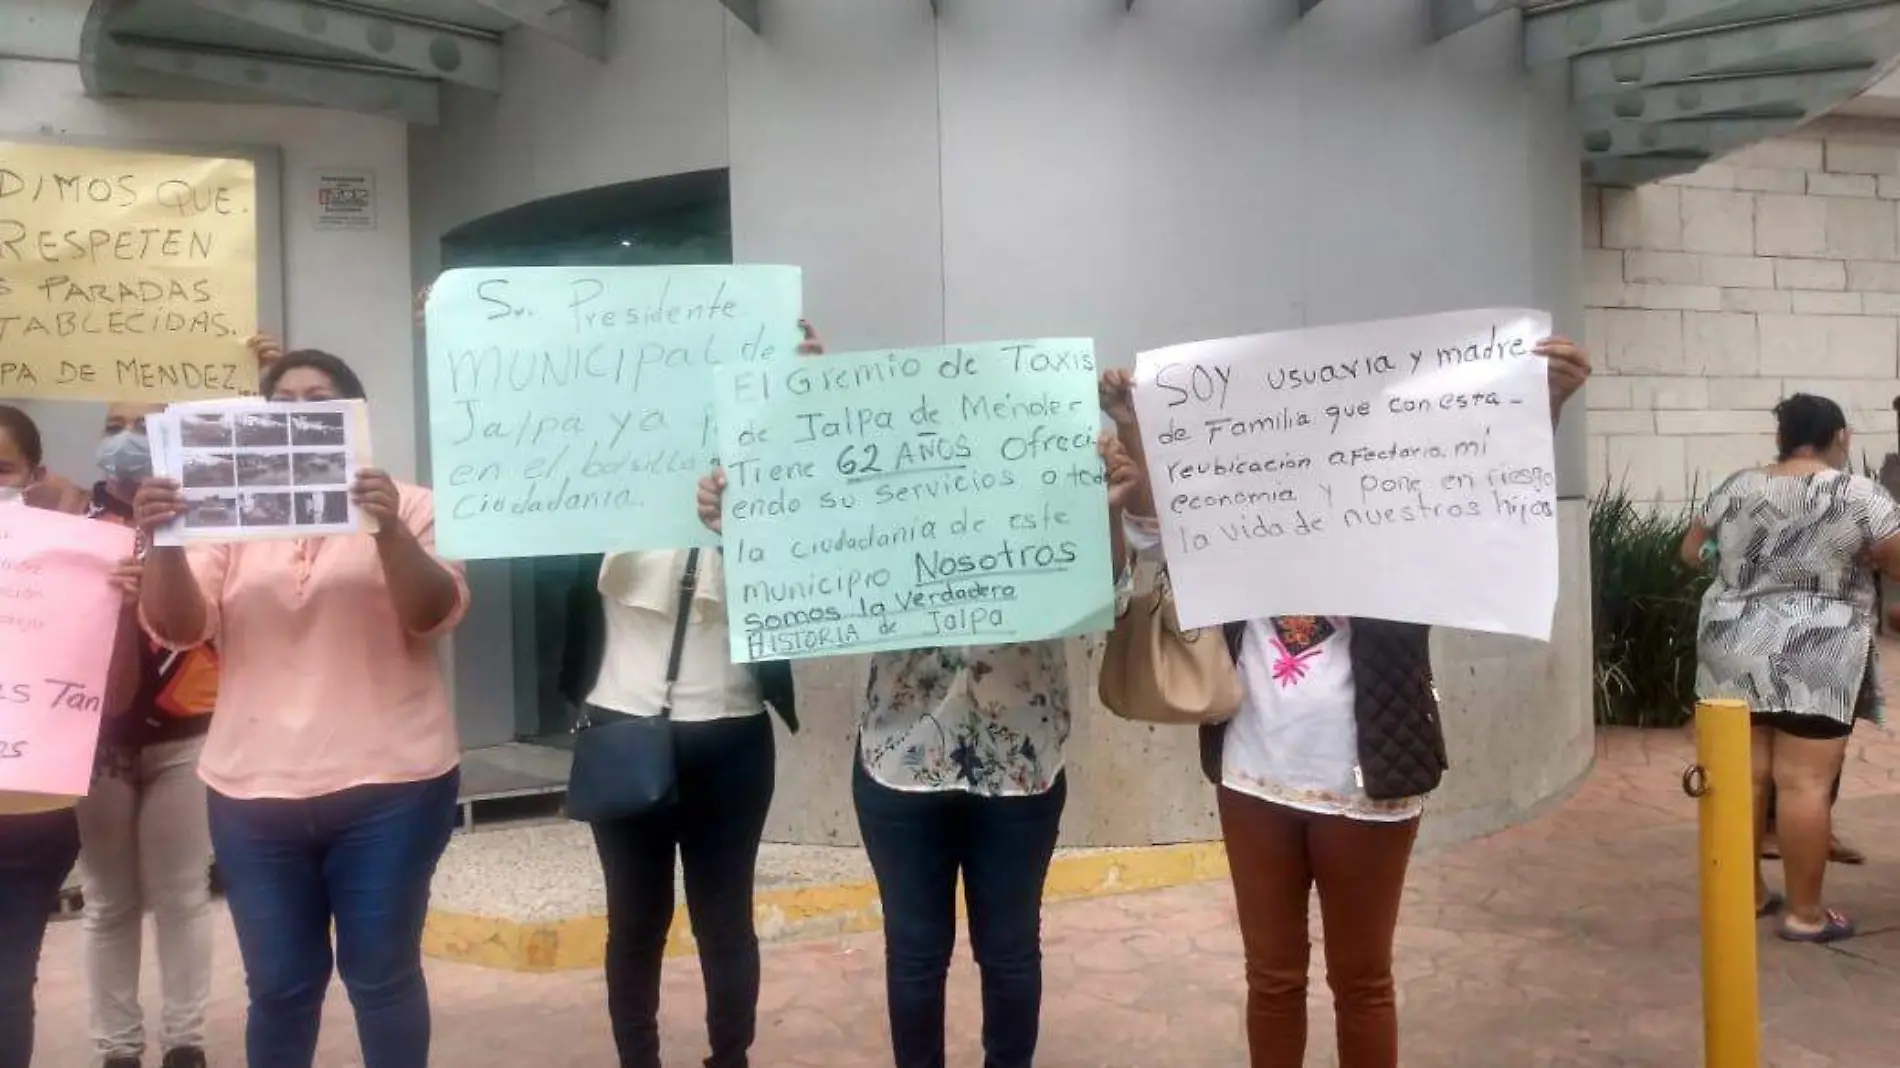 DIMOS QUE.
RESPETEN
S PARADAS
TABLECIDAS.
PA DE MENDEZ...
Sr. Presidente
MUNICIPAL de
Jalpa ya
en el bolsillo
Ciudadania.
El Gremio de Taxis
de Jalpa de Méndez
Tiene 62 AÑOS Ofreci
endo su servicios a toda
la ciudadania de este
municipio Nosotros
somos la verdadera
HISTORIA de Jalpa
SOY usuaria y madre
de Familia que con esta-
reubicación afectaria mi
economia y pone en riesgo
la vida de nuestros hijos
as Tan